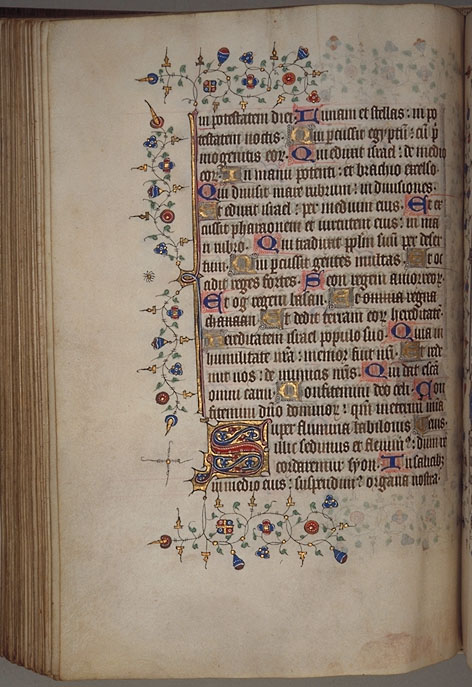 in potestatem diei. Lunam et stellas: in po
testatem noctis. Qui percussit egyptū: cū p̄
mogenitis eoꝝ. Qui eduxit israel: de medio
eoꝝ. In manu potenti: et brachio excelso.
Qui diuisit mare rubrum: in diuisiones.
Et eduxit israel: per medium eius. Et ex
cussit pharaonem et uirtutem eius: in ma
ri rubro. Qui traduxit pplm suū per deser
tum. Qui percussit gentes multas. Et oc
cidit reges fortes. Seon regem amorreoꝝ.
Et og regem basan. Et omnia regna
chanaan. Et dedit terram eoꝝ hereditatē.
Hereditatem israel populo suo. Quia in
humilitate nr̄a: memor fuit nr̄i. Et rede
mit nos: de inimicis nr̄is. Qui dat escā
omni carni. Confitemini deo celi. Con
fitemini dn̄o dominoꝝ: qm̄ in eternū mīa
Super flumina babilonis eius.
illic sedimus et fleuim⁹: dum re
cordaremur syon. In salicib;
in medio eius: suspendim⁹ organa nostra.